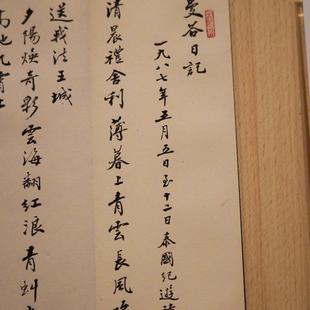 曼谷日記
一九八七年五月五日至十二日泰國紀遊詩
清晨禮舍利薄暮上青雲長風
送我法王城
夕陽煥奇彩雲海翻紅浪青